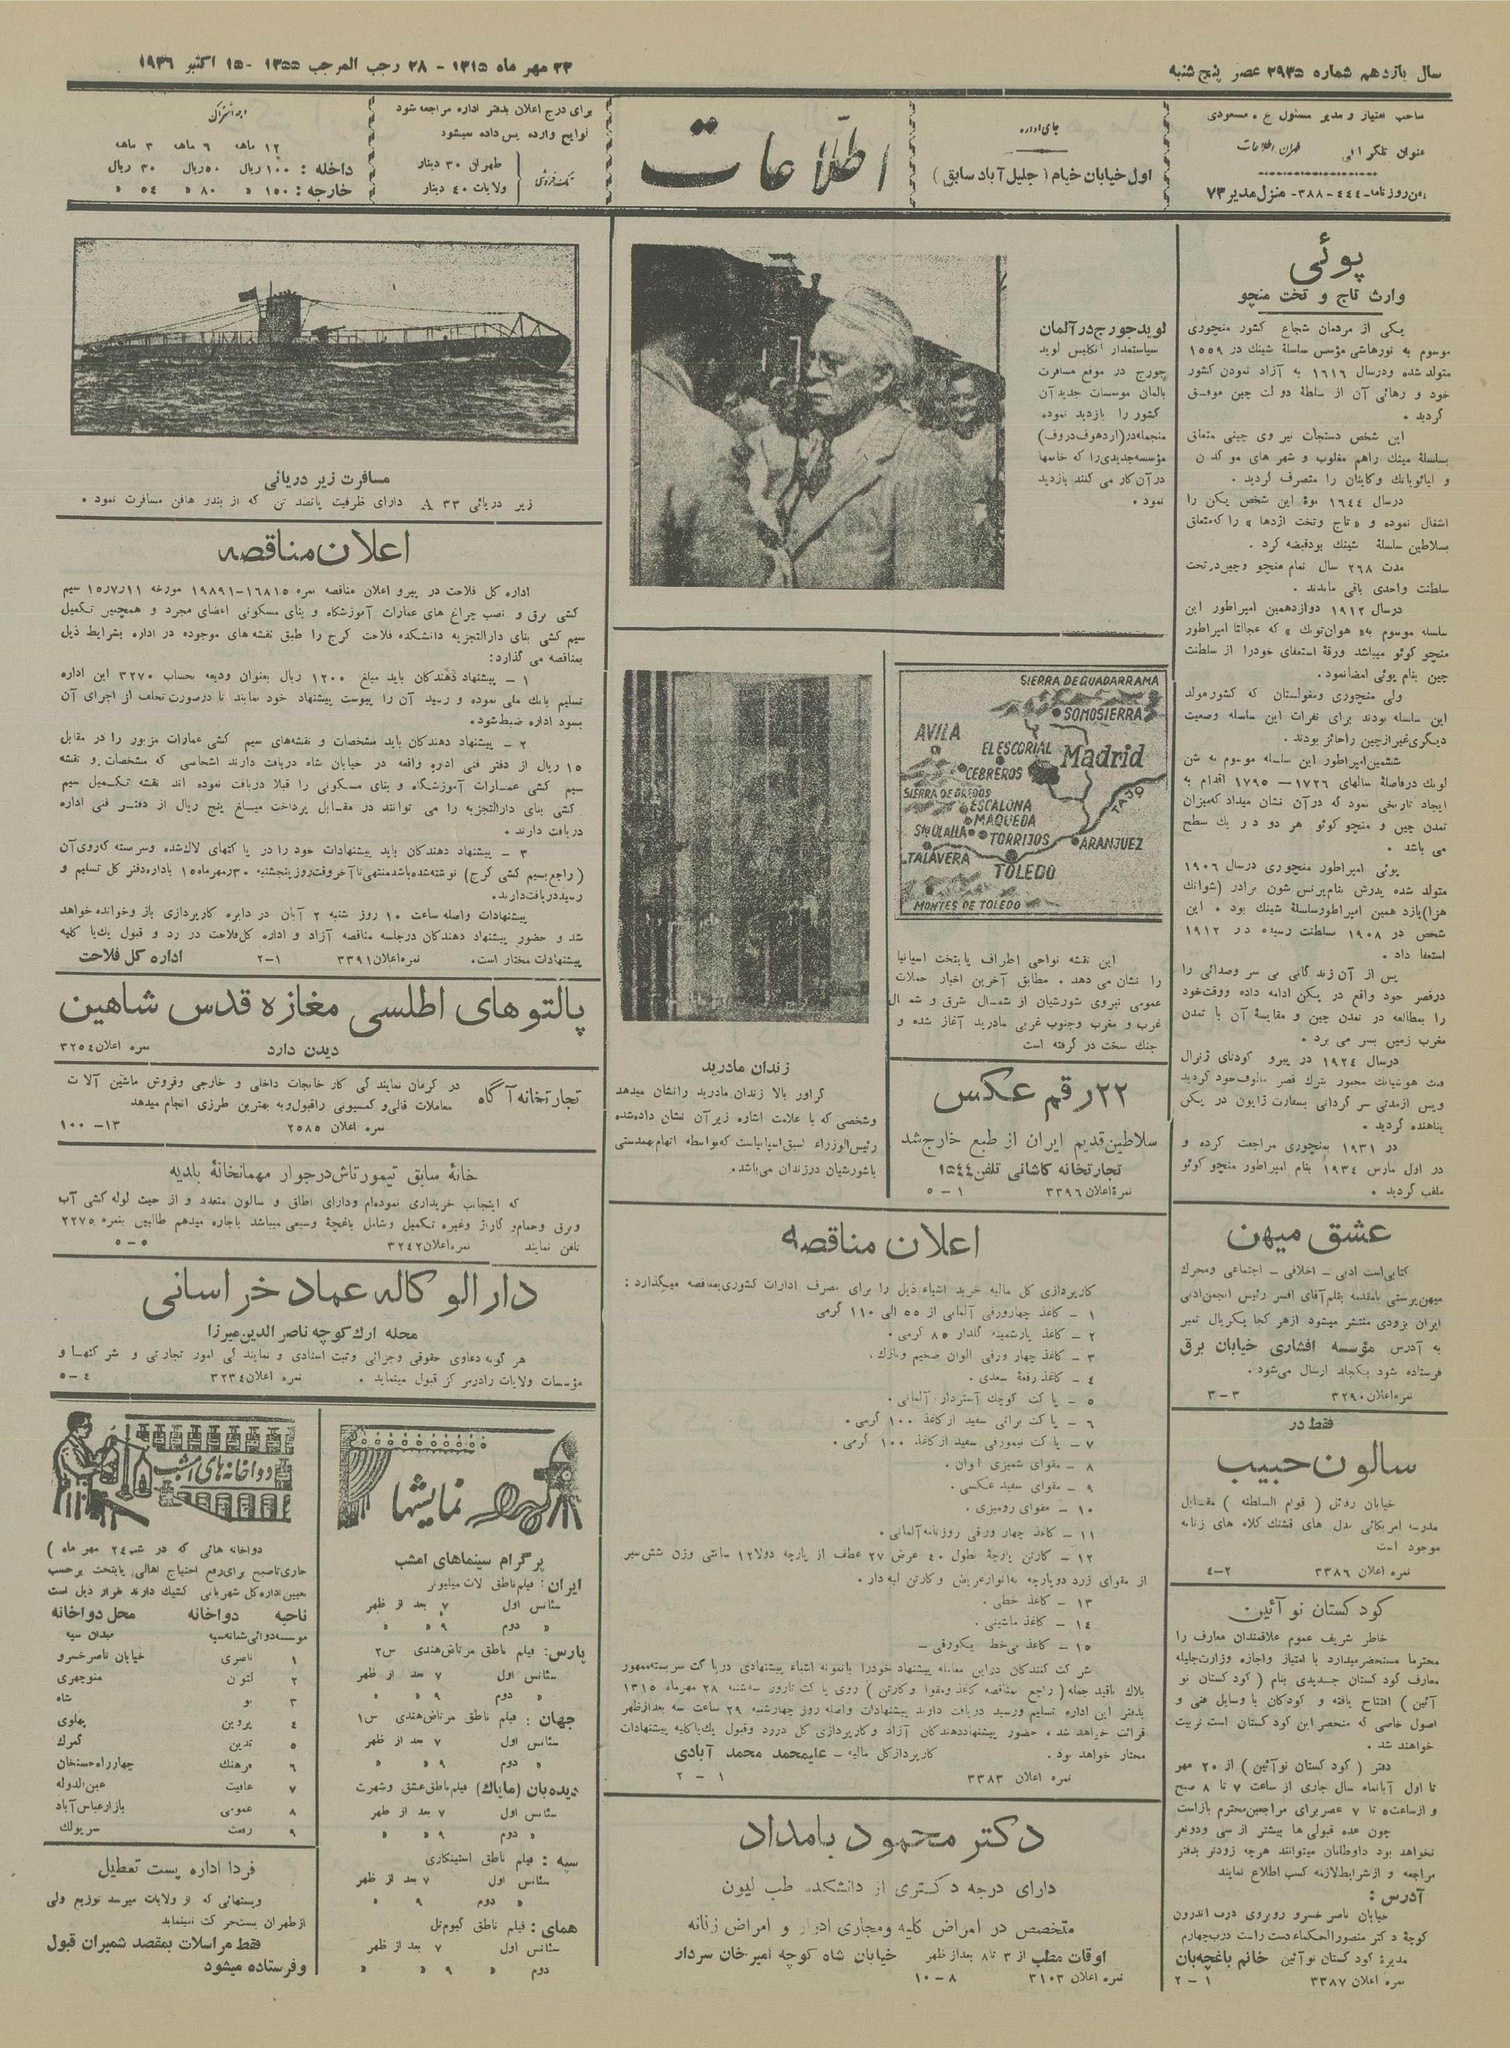 سال یازدهم شماره ۲۹۳۵ عصر پنج شنبه
۲۳ مهر ماه ۱۳۱۵ - ۲۸ رجب المرجب ۱۳۵۵ - ۱۵ اکتبر ۱۹۳۶
صاحب امتیاز و مدیر مسئول ع . مسعودی
عنوان تلگرافی طهران اطلاعات
روزنامه-۴۴۴-۳۸۸- منزل مدیر ۷۳
جای اداره
اول خیابان خیام ( جلیل آباد سابق )
اطلاعات
برای درج اعلان بدفتر اداره مراجعه شود
لوایح وارده پس داده نمیشود
تکفروشی
طهران ۳۰ دینار
ولایات ۴۰ دینار
وجه اشتراک
۱۲ ماهه ۶ ماهه ۳ ماهه
داخله : ۱۰۰ ریال ۵۰ ریال ۳۰ ریال
خارجه : ۱۵۰ » ۸۰ » ۵۴ »
پوئی
وارث تاج و تخت منچو
یکی از مردمان شجاع کشور منچوری
موسوم به نورهاشی مؤسس سلسلهٔ شینك در ۱۵۵۹
متولد شده ودرسال ۱۶۱۶ به آزاد نمودن کشور
خود و رهائی آن از سلطهٔ دولت چین موفق
گردید .
این شخص دستجات نیروی چینی متعلق
بسلسلهٔ مینك راهم مغلوب و شهر های موکدن
و لیائویانك وکاپتان را متصرف گردید .
درسال ۱۶۴۴ نوهٔ این شخص پکن را
اشغال نموده و « تاج وتخت اژدها » را که متعلق
بسلاطین سلسلهٔ شینك بود قبضه کرد .
مدت ۲۶۸ سال تمام منچو وچین در تحت
سلطنت واحدی باقی ماندند .
درسال ۱۹۱۲ دوازدهمین امپراطور این
سلسله موسوم به « هوان تونك » که عجالتا امپراطور
منچو کوئو میباشد ورقهٔ استعفای خودرا از سلطنت
چین بنام پوئی امضا نمود .
ولی منچوری ومغولستان که کشور مولد
این سلسله بودند برای نفرات این سلسله وضعیت
دیگری غیر از چین را حائز بودند .
ششمین امپراطور این سلسله موسوم به شن
لونك درفاصلهٔ سالهای ۱۷۲۶ — ۱۷۹۵ اقدام به
ایجاد تاریخی نمود که درآن نشان میداد که میزان
تمدن چین و منچو کوئو هر دو در یك سطح
می باشد .
پوئی امپراطور منچوری درسال ۱۹۰۶
متولد شده پدرش بنام پرنس شون برادر (شوانك
هزا) یازدهمین امپراطور سلسلهٔ شینك بود . این
شخص در ۱۹۰۸ سلطنت رسیده در ۱۹۱۲
استعفا داد .
پس از آن زندگانی بی سر وصدائی را
درقصر خود واقع در پکن ادامه داده ووقت خود
را بمطالعه در تمدن چین و مقایسهٔ آن با تمدن
مغرب زمین بسر می برد .
درسال ۱۹۲۴ در پیرو کودتای ژنرال
فنك هوتیانك مجبور بترك قصر مألوف خود گردید
وپس از مدتی سرگردانی بسفارت ژاپون در پکن
پناهنده گردید .
در ۱۹۳۱ بمنچوری مراجعت کرده و
در اول مارس ۱۹۳۴ بنام امپراطور منچو کوئو
ملقب گردید .
عشق میهن
کتابی است ادبی - اخلاقی - اجتماعی ومحرك
میهن پرستی با مقدمه بقلم آقای افسر رئیس انجمن ادبی
ایران بزودی منتشر میشود از هر کجا یکریال تمبر
به آدرس مؤسسه افشاری خیابان برق
فرستاده شود یکجلد ارسال میشود .
نمره اعلان ۳۲۹۰ ۳-۳
فقط در
سالون حبیب
خیابان رفائل ( قوام السلطنه ) مقابل
مدرسه امریکائی مدل های قشنك کلاه های زنانه
موجود است
نمره اعلان ۳۳۸۶ ۲-۴
کودکستان نو آئین
خاطر شریف عموم علاقمندان معارف را
محترما مستحضر میدارد با امتیاز واجازه وزارت جلیله
معارف کودکستان جدیدی بنام ( کودکستان نو
آئین ) افتتاح یافته و کودکان با وسایل فنی و
اصول خاصی که منحصر این کودکستان است تربیت
خواهند شد .
دفتر ( کودکستان نو آئین ) از ۲۰ مهر
تا اول آبانماه سال جاری از ساعت ۷ تا ۸ صبح
و از ساعت ۵ تا ۷ عصر برای مراجعین محترم باز است
چون عده قبولی ها بیشتر از سی ودو نفر
نخواهد بود داوطلبان میتوانند هرچه زودتر بدفتر
مراجعه و از شرایط لازمه کسب اطلاع نمایند
آدرس :
خیابان ناصر خسرو روبروی درب اندرون
کوچهٔ دکتر منصور الحکماء دست راست درب چهارم
مدیرهٔ کودکستان نو آئین خانم باغچه بان
نمره اعلان ۳۳۸۷ ۱-۲
لوید جورج در آلمان
سیاستمدار انگلیس لوید
جورج در موقع مسافرت
بآلمان موسسات جدید آن
کشور را بازدید نموده
منجمله در (اردهوف دروف)
مؤسسه جدیدی را که خانمها
در آن کار می کنند بازدید
نمود .
SIERRA DE GUADARRAMA
SOMOSIERRA
AVILA
EL ESCORIAL
Madrid
CEBREROS
SIERRA DE GREDOS
ESCALONA
MAQUEDA
TAJO
STA OLALLA
TORRIJOS
ARANJUEZ
TALAVERA
TOLEDO
MONTES DE TOLEDO
این نقشه نواحی اطراف پایتخت اسپانیا
را نشان می دهد . مطابق آخرین اخبار حملات
عمومی نیروی شورشیان از شمال شرق و شمال
غرب و مغرب وجنوب غربی مادرید آغاز شده و
جنك سخت در گرفته است
زندان مادرید
گراور بالا زندان مادرید را نشان میدهد
وشخصی که با علامت اشاره زیر آن نشان داده شده
رئیس الوزراء اسبق اسپانیاست که بواسطه اتهام بهمدستی
با شورشیان در زندان می باشد .
۲۲ رقم عکس
سلاطین قدیم ایران از طبع خارج شد
تجارتخانه کاشانی تلفن ۱۵۴۴
نمرهٔ اعلان ۳۳۹۶ ۱-۵
اعلان مناقصه
کارپردازی کل مالیه خرید اشیاء ذیل را برای مصرف ادارات کشوری بمناقصه میگذارد :
۱ - کاغذ چهارورقی آلمانی از ۵۵ الی ۱۱۰ گرمی
۲ - کاغذ پارشمینه گلدار ۸۵ گرمی .
۳ - کاغذ چهار ورقی الوان ضخیم ونازك .
۴ - کاغذ رقعهٔ سعدی .
۵ - پاکت کوچك آستردار آلمانی .
۶ - پاکت برأتی سفید از کاغذ ۱۰۰ گرمی .
۷ - پاکت نیمورقی سفید از کاغذ ۱۰۰ گرمی .
۸ - مقوای شمیزی الوان .
۹ - مقوای سفید عکسی .
۱۰ - مقوای رومیزی .
۱۱ - کاغذ چهار ورقی روزنامه آلمانی .
۱۲ - کارتن پارچهٔ بطول ۴۰ عرض ۲۷ عطف از پارچه دولا ۱۲ سانتی وزن شش سیر
از مقوای زرد دو پارچه به انوار عریض وکارتن لبه دار .
۱۳ - کاغذ خطی .
۱۴ - کاغذ ماشینی .
۱۵ - کاغذ بی خط یکورقی -
شرکت کنندگان دراین معامله پیشنهاد خودرا بانمونه اشیاء پیشنهادی درپاکت سربسته ممهور
بلاك باقید جمله ( راجع بمناقصه کاغذ ومقوا وکارتن ) روی پاکت تاروز سه شنبه ۲۸ مهر ماه ۱۳۱۵
بدفتر این اداره تسلیم ورسید دریافت دارند پیشنهادات واصله روز چهارشنبه ۲۹ ساعت سه بعد از ظهر
قرائت خواهد شد ، حضور پیشنهاد دهندگان آزاد وکارپردازی کل دررد وقبول یك یا کلیه پیشنهادات
مختار خواهد بود . کارپرداز کل مالیه - علیمحمد محمد آبادی
نمره اعلان ۳۳۸۳ ۱-۲
دکتر محمود بامداد
دارای درجه دکتری از دانشکده طب لیون
متخصص در امراض کلیه ومجاری ادرار و امراض زنانه
اوقات مطب از ۳ تا ۸ بعد از ظهر خیابان شاه کوچه امیر خان سردار
نمره اعلان ۳۱۰۳ ۸-۱۰
مسافرت زیر دریائی
زیر دریائی A ۳۳ دارای ظرفیت پانصد تن که از بندر هافن مسافرت نمود .
اعلان مناقصه
اداره کل فلاحت در پیرو اعلان مناقصه نمره ۱۶۸۱۵-۱۹۸۹۱ مورخه ۱۱ر۷ر۱۵ سیم
کشی برق و نصب چراغ های عمارات آموزشگاه و بنای مسکونی اعضای مجرد و همچنین تکمیل
سیم کشی بنای دارالتجزیه دانشکده فلاحت کرج را طبق نقشه های موجوده در اداره بشرایط ذیل
بمناقصه می گذارد :
۱ - پیشنهاد دهندکان باید مبلغ ۱۲۰۰ ریال بعنوان ودیعه بحساب ۳۲۷۰ این اداره
تسلیم بانك ملی نموده و رسید آن را پیوست پیشنهاد خود نمایند تا درصورت تخلف از اجرای آن
بسود اداره ضبط شود .
۲ - پیشنهاد دهندکان باید مشخصات و نقشه های سیم کشی عمارات مزبور را در مقابل
۱۵ ریال از دفتر فنی اداره واقعه در خیابان شاه دریافت دارند اشخاصی که مشخصات و نقشه
سیم کشی عمارات آموزشگاه و بنای مسکونی را قبلا دریافت نموده اند نقشه تکمیل سیم
کشی بنای دارالتجزیه را می توانند در مقابل پرداخت مبلغ پنج ریال از دفتر فنی اداره
دریافت دارند .
۳ - پیشنهاد دهندکان باید پیشنهادات خود را در پاکتهای لاك شده وسربسته که روی آن
( راجع بسیم کشی کرج ) نوشته شده باشد منتهی تا آخر وقت روز پنجشنبه ۳۰ مهر ماه ۱۵ باداره دفتر کل تسلیم و
رسید دریافت دارند .
پیشنهادات واصله ساعت ۱۰ روز شنبه ۲ آبان در دایره کارپردازی باز وخوانده خواهد
شد و حضور پیشنهاد دهندکان درجلسه مناقصه آزاد و اداره کل فلاحت در رد و قبول یك یا کلیه
پیشنهادات مختار است . نمره اعلان ۳۳۹۱ ۱-۲ اداره کل فلاحت
پالتوهای اطلسی مغازه قدس شاهین
دیدن دارد نمره اعلان ۳۲۵۴
تجارتخانه آگاه
در کرمان نمایندگی کارخانجات داخلی و خارجی وفروش ماشین آلات
معاملات قالی و کمسیونی را قبول و به بهترین طرزی انجام میدهد
نمره اعلان ۲۵۸۵ ۱۳-۱۰۰
خانهٔ سابق تیمورتاش در جوار مهمانخانهٔ بلدیه
که اینجانب خریداری نموده ام ودارای اطاق و سالون متعدد و از حیث لوله کشی آب
وبرق وحمام و گاراژ وغیره تکمیل وشامل باغچهٔ وسیعی میباشد باجاره میدهم طالبین بنمره ۲۲۷۵
تلفن نمایند نمره اعلان ۳۲۴۲ ۵-۵
دارالوکاله عماد خراسانی
محله ارك کوچه ناصر الدین میرزا
هرگونه دعاوی حقوقی وجزائی وثبت اسنادی و نمایندگی امور تجارتی و شرکتها و
مؤسسات ولایات رادرمرکز قبول مینماید . نمره اعلان ۳۲۳۴ ۴-۵
نمایشها
پرگرام سینماهای امشب
ایران : فیلم ناطق لات میلیونر
سئانس اول ۷ بعد از ظهر
» دوم ۹ » »
پارس : فیلم ناطق مرتاض هندی س۲
سئانس اول ۷ بعد از ظهر
» دوم ۹ » »
جهان : فیلم ناطق مرتاض هندی س۱
سئانس اول ۷ بعد از ظهر
» دوم ۹ » »
دیده بان (مایاك) فیلم ناطق عشق وشهرت
سئانس اول ۷ بعد از ظهر
» دوم ۹ » »
سپه : فیلم ناطق استینکاری
سئانس اول ۷ بعد از ظهر
» دوم ۹ »
همای : فیلم ناطق گیوم تل
سئانس اول ۷ بعد از ظهر
دوم » ۹ » »
دواخانه های امشب
دواخانه هائی که در شب ۲۴ مهر ماه )
جاری تاصبح برای رفع احتیاج اهالی پایتخت برحسب
تعیین اداره کل شهربانی کشیك دارند بقرار ذیل است
ناحیه دواخانه محل دواخانه
موسسه دوائی شبانه سپه میدان سپه
۱ ناصری خیابان ناصر خسرو
۲ لئون منوچهری
۳ نو شاه
۴ پروین پهلوی
۵ تدین گمرك
۶ فرهنك چهارراه حسنخان
۷ عافیت عین الدوله
۸ عمومی بازار عباس آباد
۹ رفعت سرپولك
فردا اداره پست تعطیل
وپستهائی که از ولایات میرسد توزیع ولی
از طهران پست حرکت نمینماید
فقط مراسلات بمقصد شمیران قبول
وفرستاده میشود